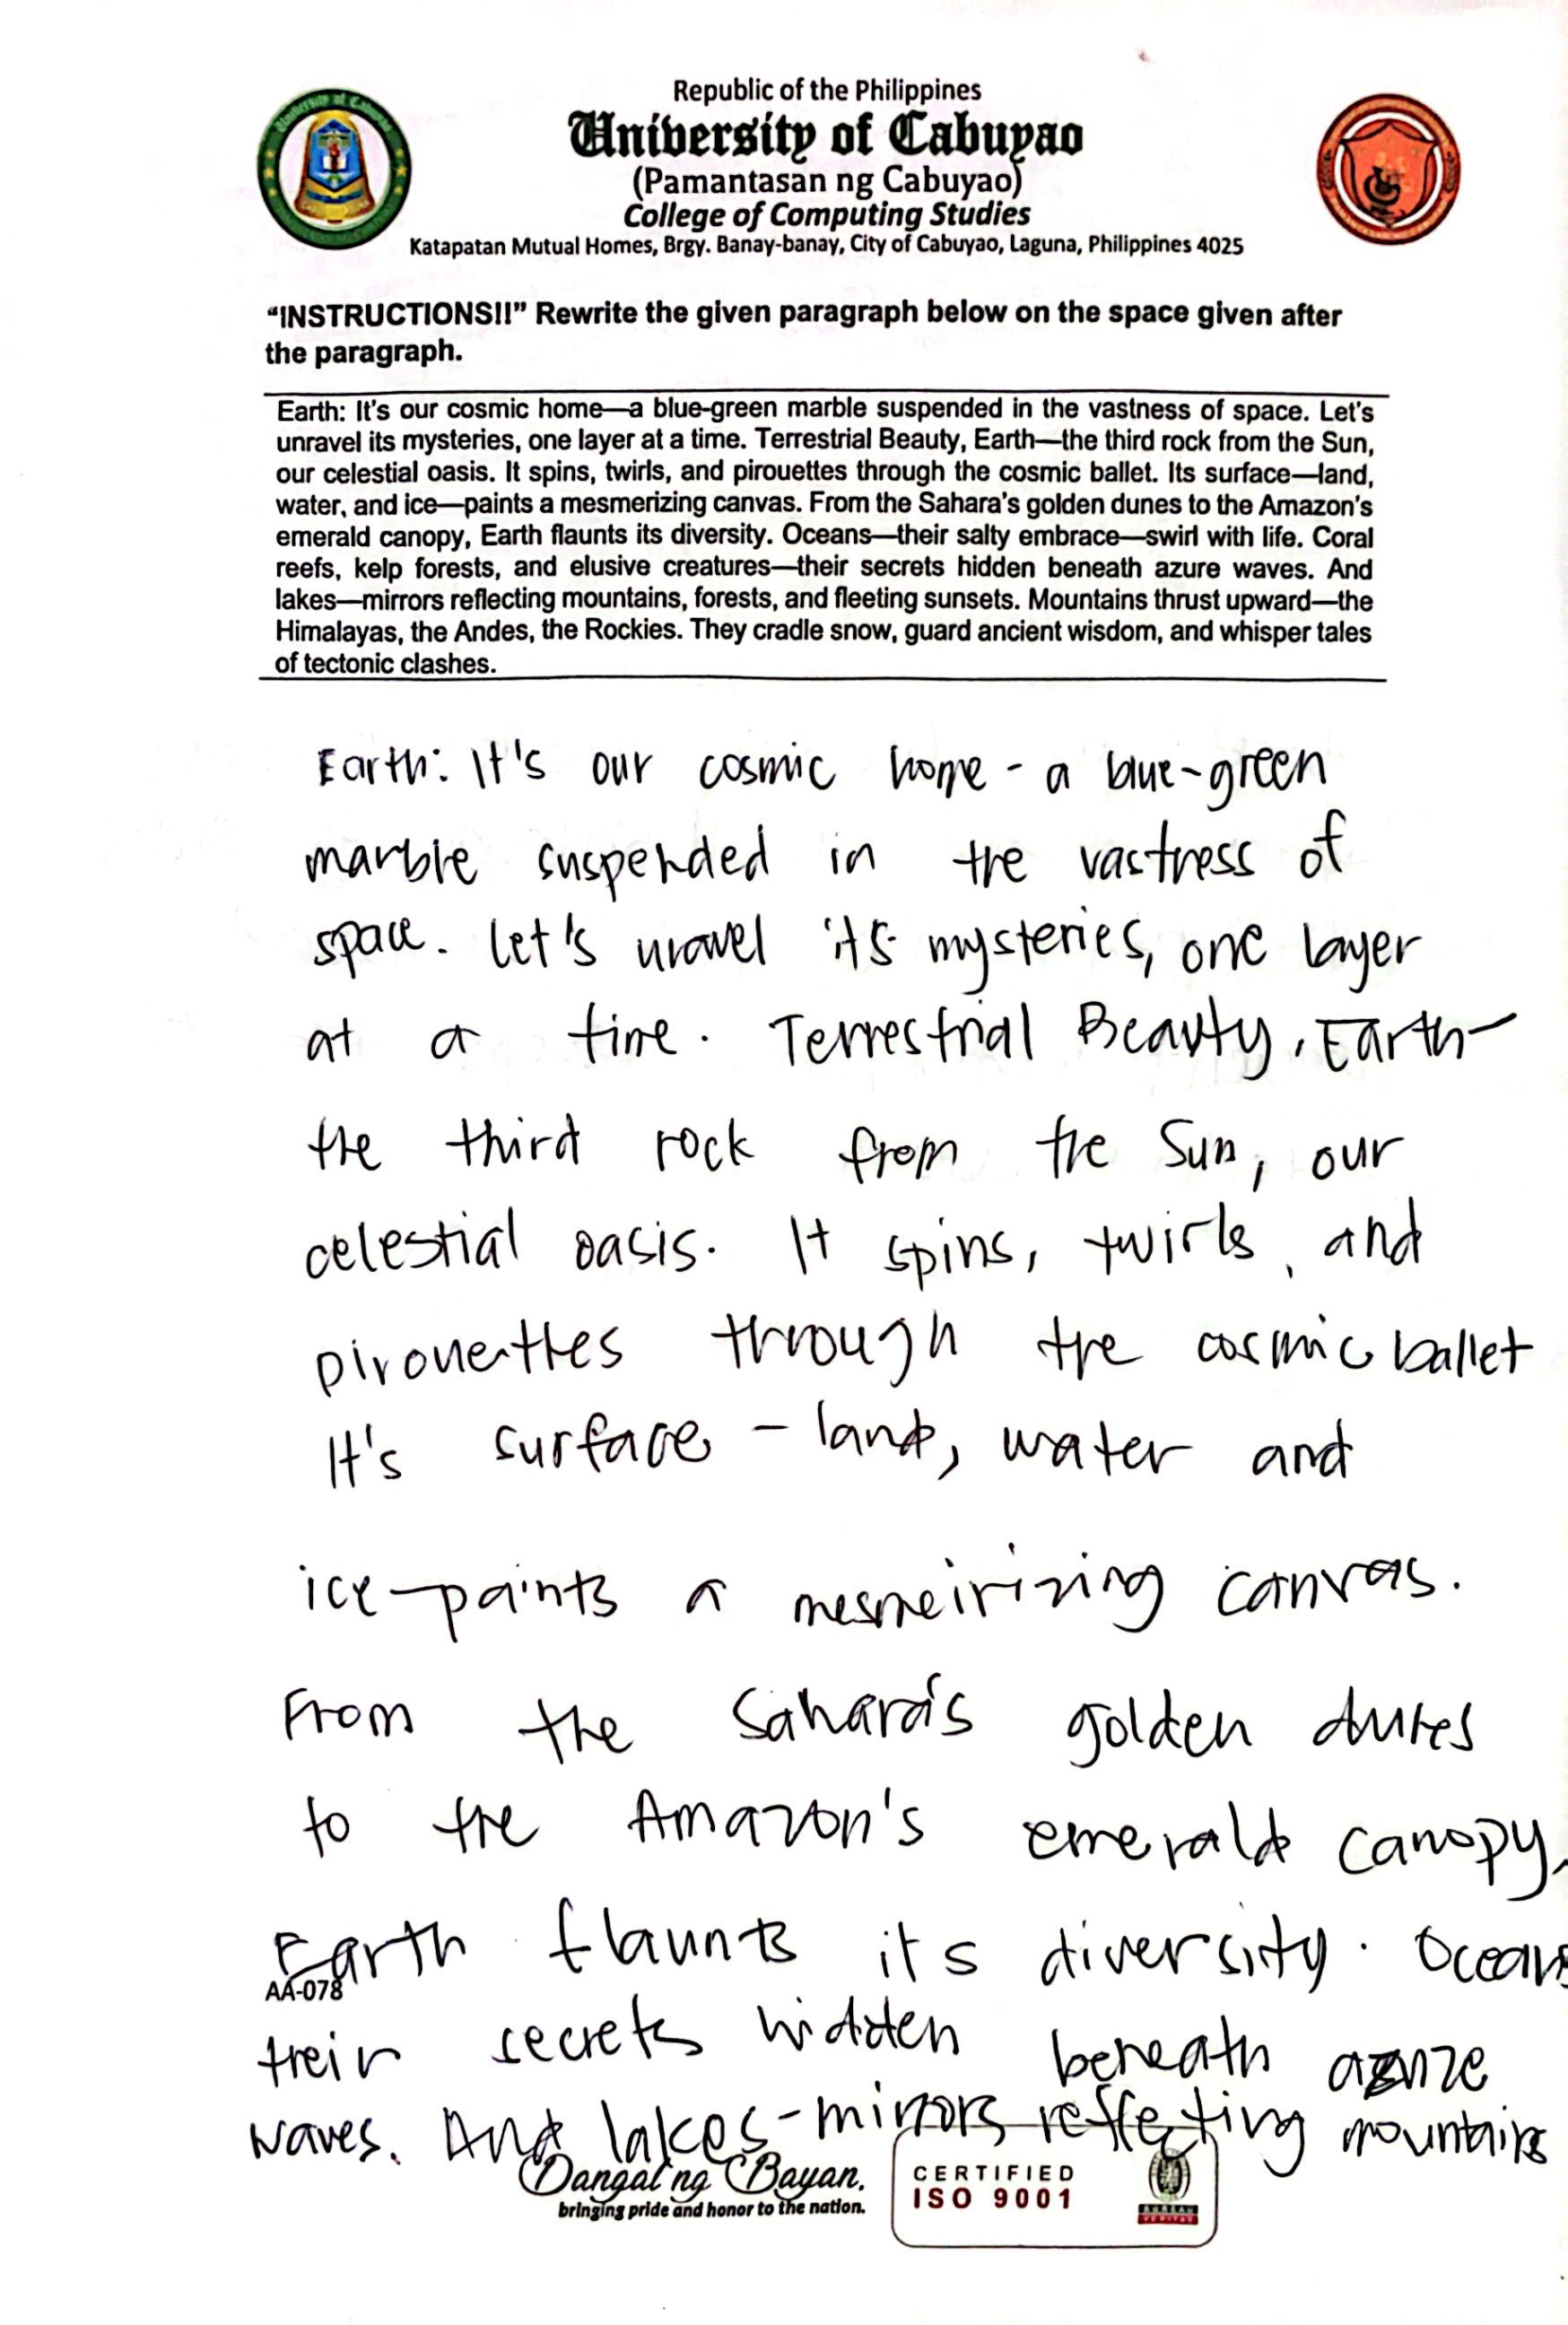 Republic of the Philippines
University of Cabuyao
(Pamantasan ng Cabuyao)
College of Computing Studies
Katapatan Mutual Homes, Brgy. Banay-banay, City of Cabuyao, Laguna, Philippines 4025
“INSTRUCTIONS!!” Rewrite the given paragraph below on the space given after
the paragraph.
Earth: It’s our cosmic home—a blue-green marble suspended in the vastness of space. Let’s
unravel its mysteries, one layer at a time. Terrestrial Beauty, Earth—the third rock from the Sun,
our celestial oasis. It spins, twirls, and pirouettes through the cosmic ballet. Its surface—land,
water, and ice—paints a mesmerizing canvas. From the Sahara’s golden dunes to the Amazon’s
emerald canopy, Earth flaunts its diversity. Oceans—their salty embrace—swirl with life. Coral
reefs, kelp forests, and elusive creatures—their secrets hidden beneath azure waves. And
lakes—mirrors reflecting mountains, forests, and fleeting sunsets. Mountains thrust upward—the
Himalayas, the Andes, the Rockies. They cradle snow, guard ancient wisdom, and whisper tales
of tectonic clashes.
Earth: It's our cosmic home - a blue-green
marble suspended in the vastness of
space. Let's uravel its mysteries, one layer
at a time. Terrestrial Beauty, Earth-
the third rock from the Sun, our
celestial oasis. It spins, twirls, and
pirouettes through the cosmic ballet
It's surface - land, water and
ice-paints a mesmeirizing canvas.
From the Sahara's golden dunes
to the Amazon's emerald canopy,
Earth flaunts its diversity. Oceans
AA-078
their secrets hidden beneath azure
waves. And lakes-mirrors reflecting mountains
Dangal ng Bayan.
bringing pride and honor to the nation.
CERTIFIED
ISO 9001
BUREAU
VERITAS